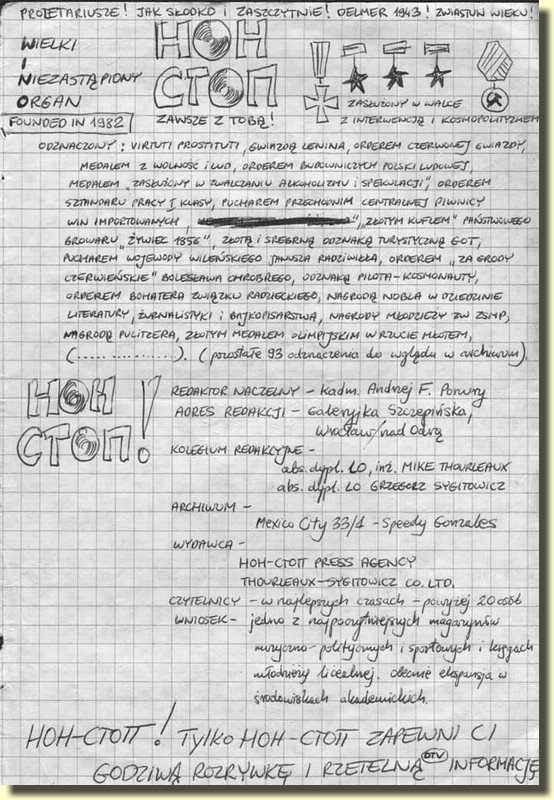 PROJETARIUSZE! JAK SŁODKO I ZASZCZYTNIE! DELMER 1943! ZWIASTUN WIEKU!
WIELKI
I
NIEZASTĄPIONY
ORGAN
FOUNDED IN 1982
НОН
СТОП
ZAWSZE Z TOBĄ!
ZASŁUŻONY W WALCE
Z INTERWENCJĄ I KOSMOPOLITYZMEM
ODZNACZONY: VIRTUTI PROSTITUTI, GWIAZDĄ LENINA, ORDEREM CZERWONEJ GWIAZDY,
MEDALEM Z WOLNOŚĆ I LUD, ORDEREM BUDOWNICZYCH POLSKI LUDOWEJ,
MEDALEM "ZASŁUŻONY W ZWALCZANIU ALKOHOLIZMU I SPEKULACJI", ORDEREM
SZTANDARU PRACY I KLASY, PUCHAREM PRZECHODNIM CENTRALNEJ PIWNICY
WIN IMPORTOWANYCH, "ZŁOTYM KUFLEM" PAŃSTWOWEGO
BROWARU "ŻYWIEC 1856", ZŁOTĄ I SREBRNĄ ODZNAKĄ TURYSTYCZNĄ GOT,
PUCHAREM WOJEWODY WILEŃSKIEGO JANUSZA RADZIWIŁŁA, ORDEREM "ZA GRODY
CZERWIEŃSKIE" BOLESŁAWA CHROBREGO, ODZNAKĄ PILOTA-KOSMONAUTY,
ORDEREM BOHATERA ZWIĄZKU RADZIECKIEGO, NAGRODĄ NOBLA W DZIEDZINIE
LITERATURY, ŻURNALISTYKI I BAJKOPISARSTWA, NAGRODY MŁODZIEŻY ZW ZSMP,
NAGRODĄ PULITZERA, ZŁOTYM MEDALEM OLIMPIJSKIM W RZUCIE MŁOTEM,
(...... ............). (pozostałe 93 odznaczenia do wglądu w archiwum).
НОН
СТОП!
REDAKTOR NACZELNY - kadm. Andrzej F. Ponury
ADRES REDAKCJI - Galeryjka Szczepińska,
Wrocław/nad Odrą
KOLEGIUM REDAKCYJNE -
abs. dypl. LO, inż. MIKE THOURLEAUX
abs. dypl. LO GRZEGORZ SYGITOWICZ
ARCHIWUM -
Mexico City 33/1 - Speedy Gonzales
WYDAWCA -
НОН-СТОП PRESS AGENCY
THOURLEAUX-SYGITOWICZ CO. LTD.
CZYTELNICY - w najlepszych czasach - powyżej 20 osób
WNIOSEK - jedno z najpoczytniejszych magazynów
muzyczno-politycznych i sportowych i księgach
młodzieży licealnej. obecnie ekspansja w
środowiskach akademickich.
НОН-СТОП! TYLKO НОН-СТОП ZAPEWNI CI
GODZIWĄ ROZRYWKĘ I RZETELNĄ DTV INFORMACJĘ